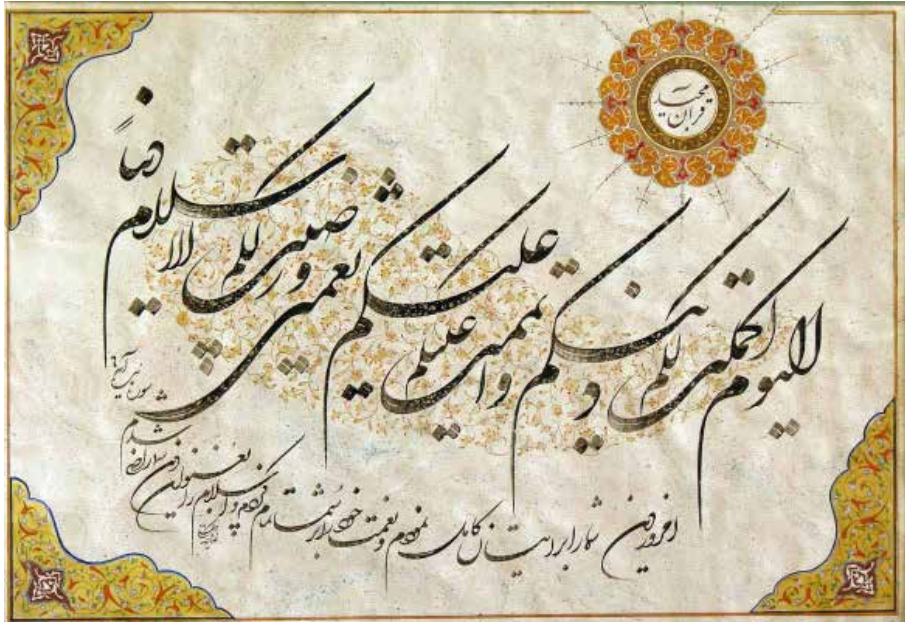 قرآن مجید
الیوم اکملت لکم دینکم و اتممت علیکم علیکم نعمتی و رضیت لکم الاسلام دیناً
امروز دین شما را برایتان کامل نمودم و نعمت خود را بر شما تمام کردم و اسلام را بعنوان دین شما راضی شدم